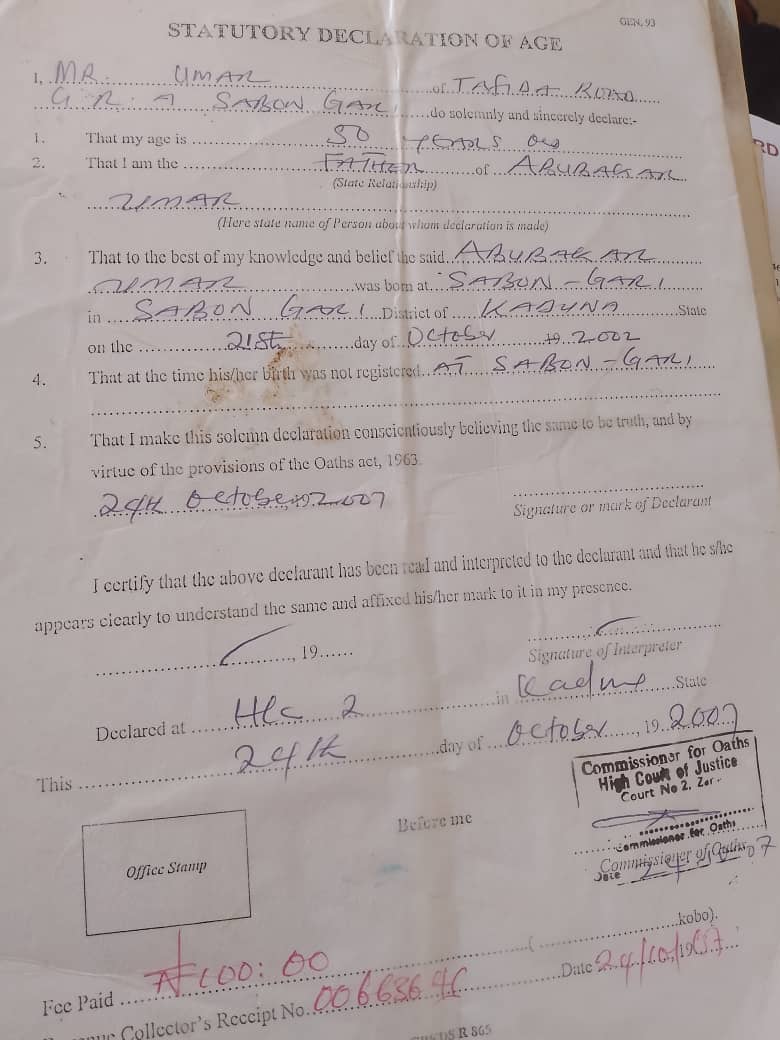 GEN. 93
STATUTORY DECLARATION OF AGE
I, MR. UMAR of TAFIDA ROAD
G.R.A SABON GARI do solemnly and sincerely declare:-
1. That my age is 50 YEARS OLD
2. That I am the FATHER of ABUBAKAR
(State Relationship)
UMAR
(Here state name of Person about whom declaration is made)
3. That to the best of my knowledge and belief the said ABUBAKAR
UMAR was born at SABON-GARI
in SABON GARI District of KADUNA State
on the 21st day of October 19 2002
4. That at the time his/her birth was not registered AT SABON-GARI
5. That I make this solemn declaration conscientiously believing the same to be truth, and by
virtue of the provisions of the Oaths act, 1963.
24th October, 19 2007
Signature or mark of Declarant
I certify that the above declarant has been read and interpreted to the declarant and that he s/he
appears clearly to understand the same and affixed his/her mark to it in my presence.
, 19
Signature of Interpreter
Declared at HCC 2 in Kaduna State
This 24th day of October, 19 2007
Commissioner for Oaths
High Court of Justice
Court No 2.
Before me
Commissioner for Oaths
Commissioner of Oaths
Date 24 07
Office Stamp
kobo).
Fee Paid ₦100:00
Collector's Receipt No. Date 24/10/
R 865